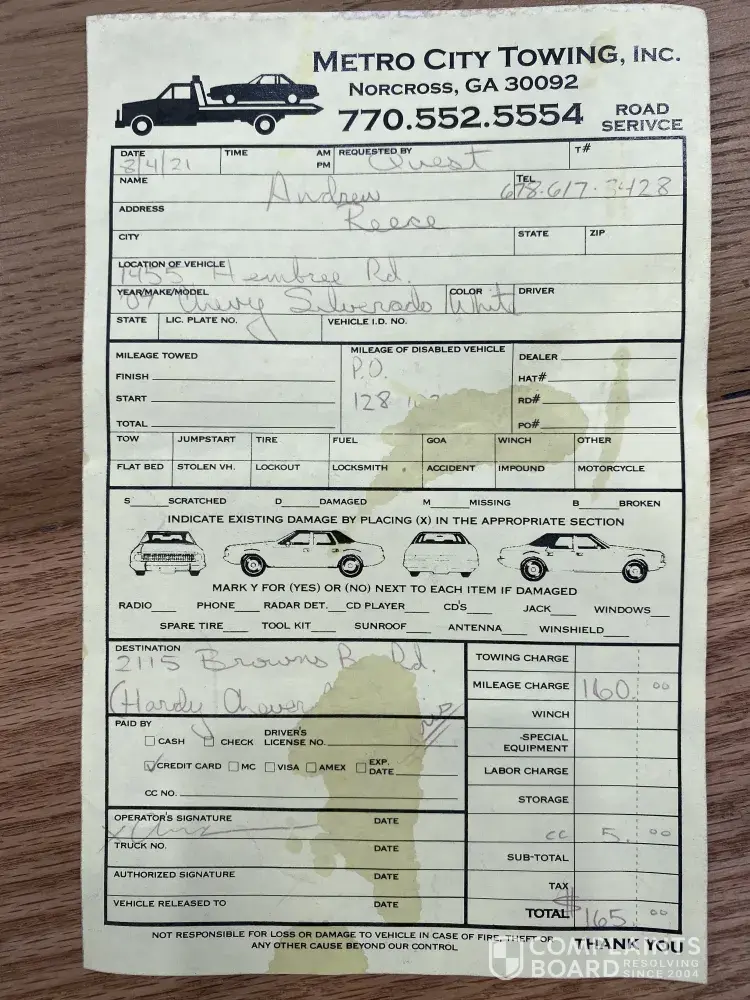 METRO CITY TOWING, INC.
NORCROSS, GA 30092
770.552.5554
ROAD SERIVCE
DATE 8/4/21 TIME AM PM REQUESTED BY Quest T#
NAME Andrew TEL 678-617-3428
ADDRESS Reece
CITY STATE ZIP
LOCATION OF VEHICLE
1455 Hembree Rd.
YEAR/MAKE/MODEL '07 Chevy Silverado COLOR White DRIVER
STATE LIC. PLATE NO. VEHICLE I.D. NO.
MILEAGE TOWED MILEAGE OF DISABLED VEHICLE DEALER
FINISH P.O. HAT#
START 128 RD#
TOTAL PO#
TOW JUMPSTART TIRE FUEL GOA WINCH OTHER
FLAT BED STOLEN VH. LOCKOUT LOCKSMITH ACCIDENT IMPOUND MOTORCYCLE
S SCRATCHED D DAMAGED M MISSING B BROKEN
INDICATE EXISTING DAMAGE BY PLACING (X) IN THE APPROPRIATE SECTION
MARK Y FOR (YES) OR (NO) NEXT TO EACH ITEM IF DAMAGED
RADIO PHONE RADAR DET. CD PLAYER CD'S JACK WINDOWS
SPARE TIRE TOOL KIT SUNROOF ANTENNA WINSHIELD
DESTINATION
2115 Browns B Rd.
(Hardy Chever
PAID BY
CASH CHECK DRIVER'S LICENSE NO.
CREDIT CARD MC VISA AMEX EXP. DATE
CC NO.
OPERATOR'S SIGNATURE DATE
X
TRUCK NO. DATE
AUTHORIZED SIGNATURE DATE
VEHICLE RELEASED TO DATE
TOWING CHARGE
MILEAGE CHARGE 160. 00
WINCH
-SPECIAL EQUIPMENT
LABOR CHARGE
STORAGE
cc 5. 00
SUB-TOTAL
TAX
TOTAL $165. 00
NOT RESPONSIBLE FOR LOSS OR DAMAGE TO VEHICLE IN CASE OF FIRE, THEFT OR
ANY OTHER CAUSE BEYOND OUR CONTROL
THANK YOU
COMPLAINTS
BOARD RESOLVING SINCE 2004